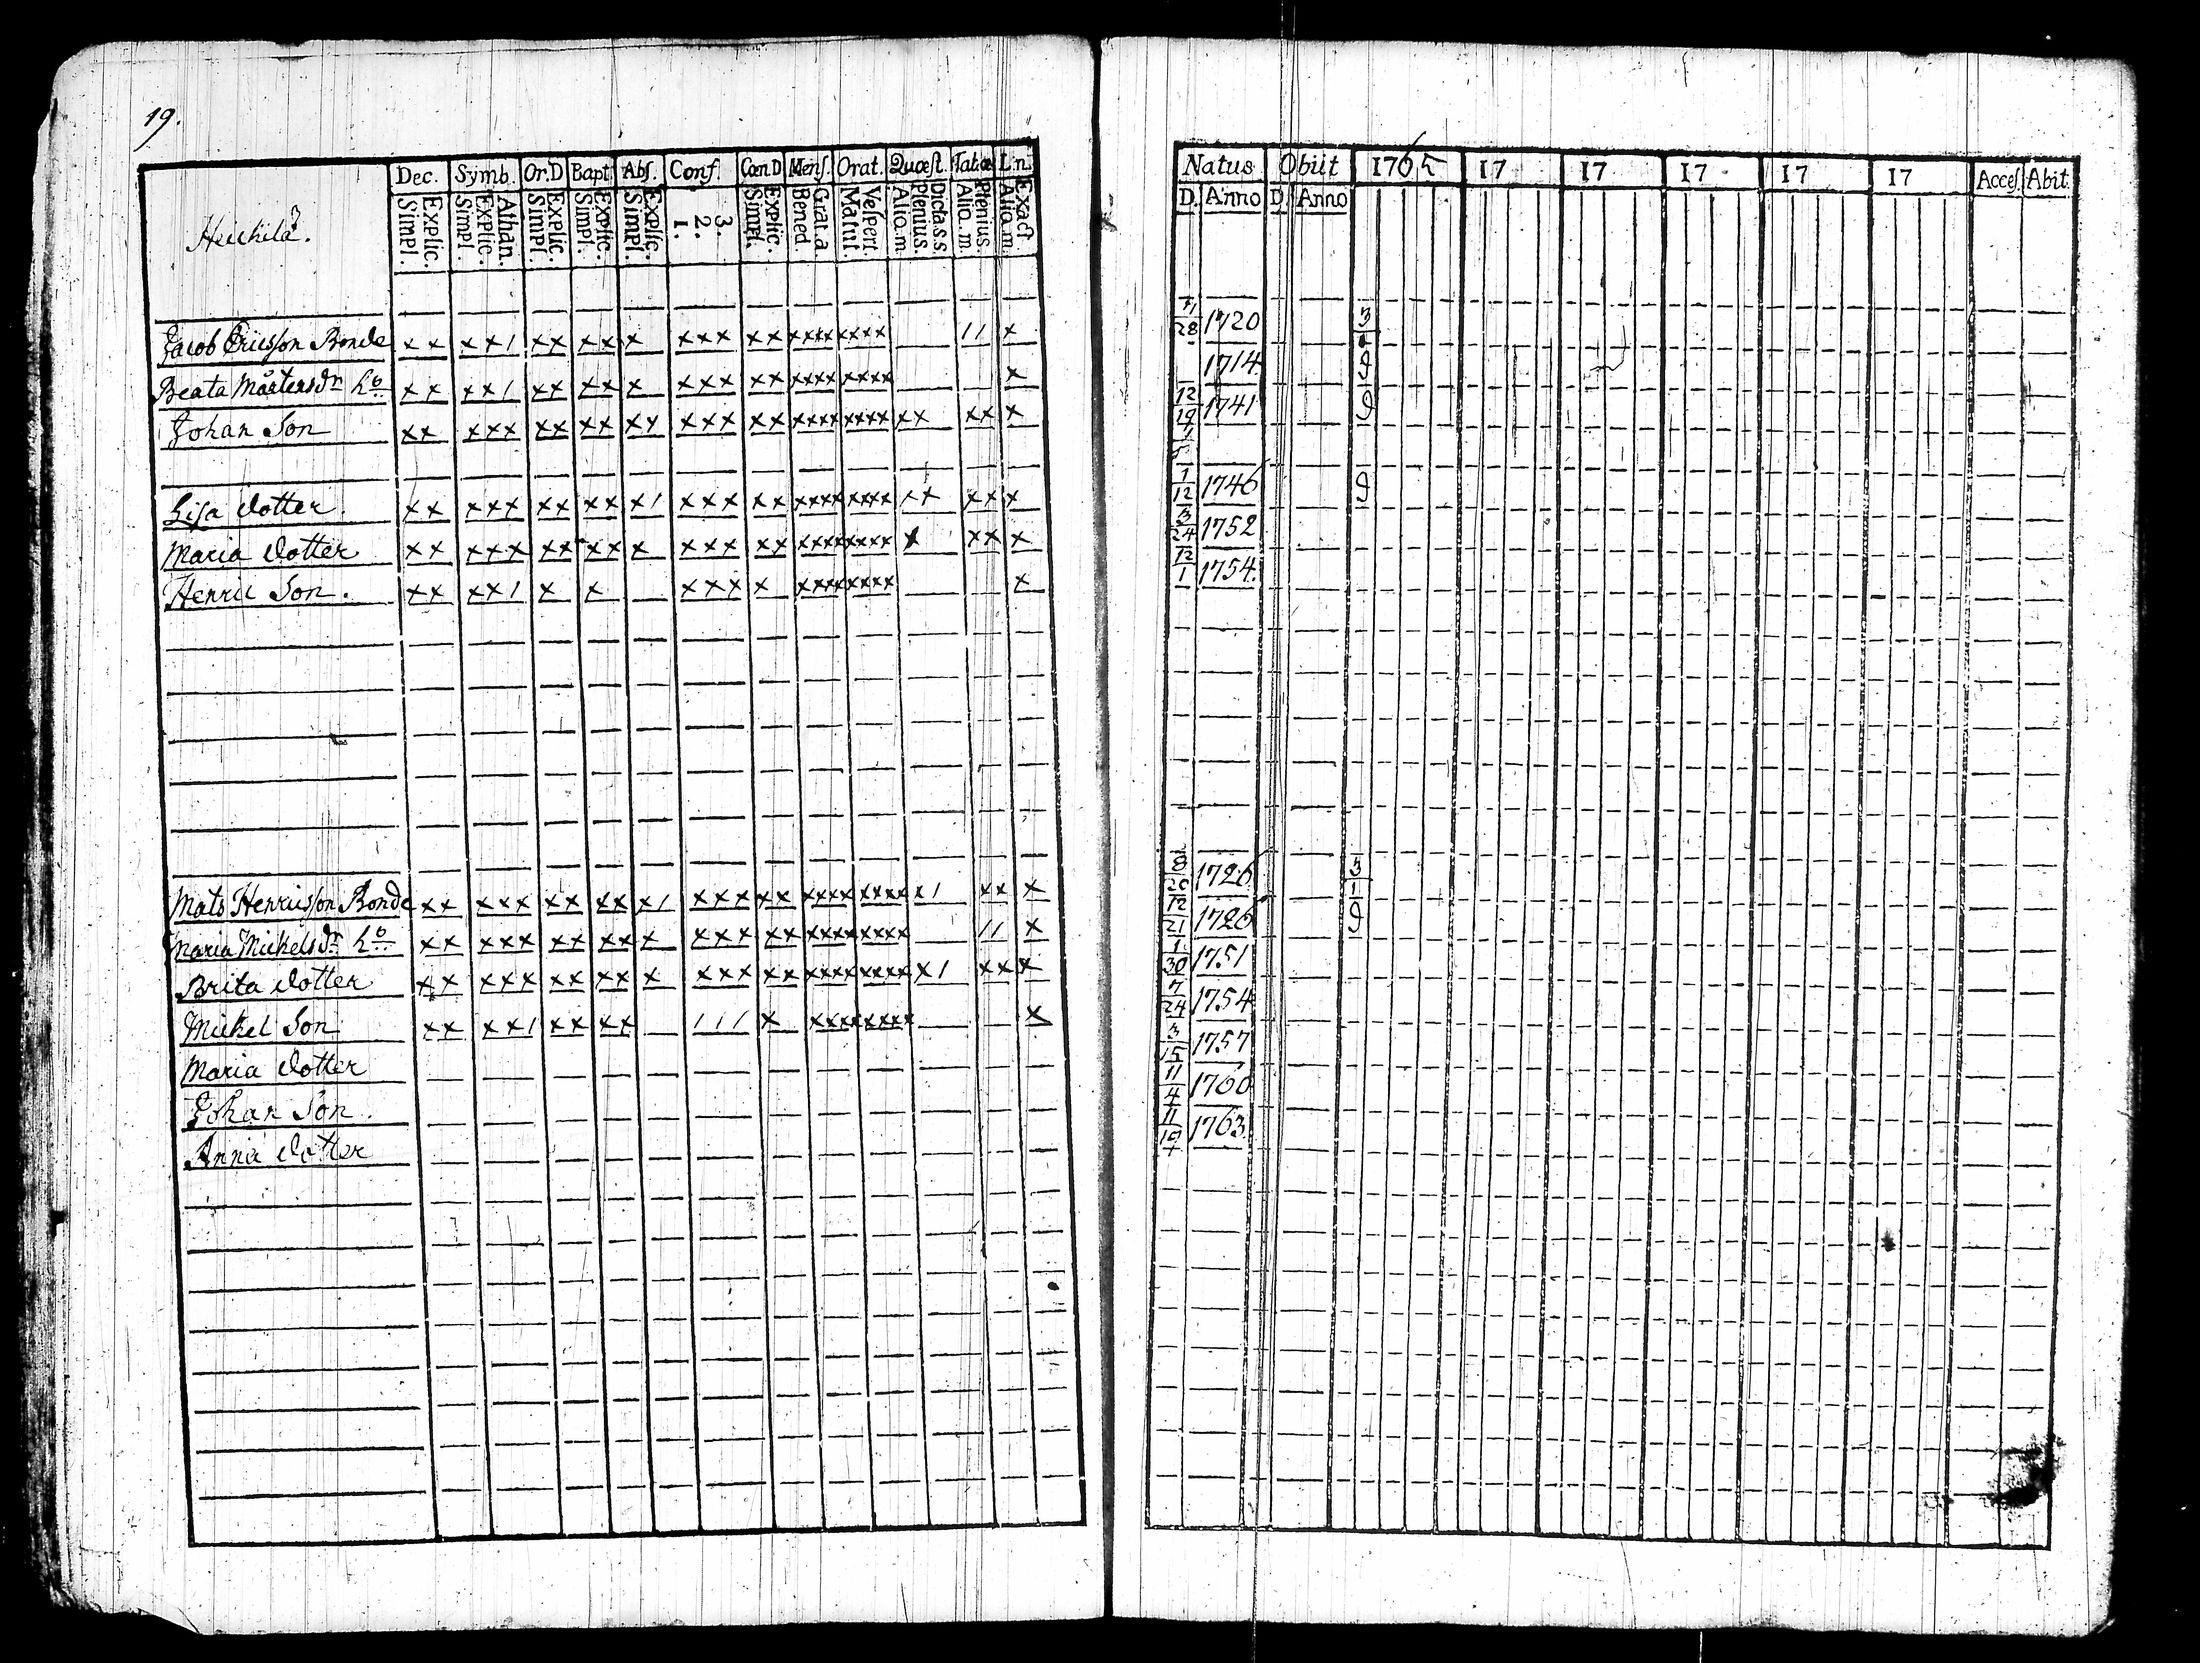 19.
Dec. Symb. Or.D Bapt. Abſ. Conf. Cœn.D Menſ. Orat. Quæſt. Tabæ L.n.
Simpl. Explic. Simpl. Explic. Athan. Simpl. Explic. Simpl. Explic. Simpl. Explic. 1. 2. 3. Simpl. Explic. Bened Grat.a Matut Veſpert. Aliq.m Plenius. Dicta.s.s Aliq.m. Plenius. Aliq.m. Exact
Heickilä.
Jacob Ericsſon Bonde x x x x 1 x x x x x x x x x x x x x x x x x x 1 1 x
Beata Mårtensdr ho x x x x 1 x x x x x x x x x x x x x x x x x x x
Johan Son x x x x x x x x x x x x x x x x x x x x x x x x x x x x x
Lisa dotter. x x x x x x x x x x 1 x x x x x x x x x x x x x x x x x x
Maria dotter x x x x x x x x x x x x x x x x x x x x x x x x x x x
Henric Son. x x x x 1 x x x x x x x x x x x x x x x
Mats Henricsſon Bonde x x x x x x x x x x 1 x x x x x x x x x x x x x x 1 x x x
Maria Mickelsdr ho x x x x x x x x x x x x x x x x x x x x x x x 1 1 x
Brita dotter x x x x x x x x x x x x x x x x x x x x x x x x 1 x x x
Mickel Son x x x x 1 x x x x 1 1 1 x x x x x x x x x x
Maria dotter
Johan Son.
Anna dotter
Natus Obiit 1765 17 17 17 17 17 Acceſ. Abit.
D. Anno D. Anno
28 1720 3
1714
12 19 1741
1 12 1746
3 24 1752
12 1 1754.
8 20 1726 3 1
12 21 1726
1 30 1751
7 24 1754
3 15 1757
11 4 1760
11 19 1763